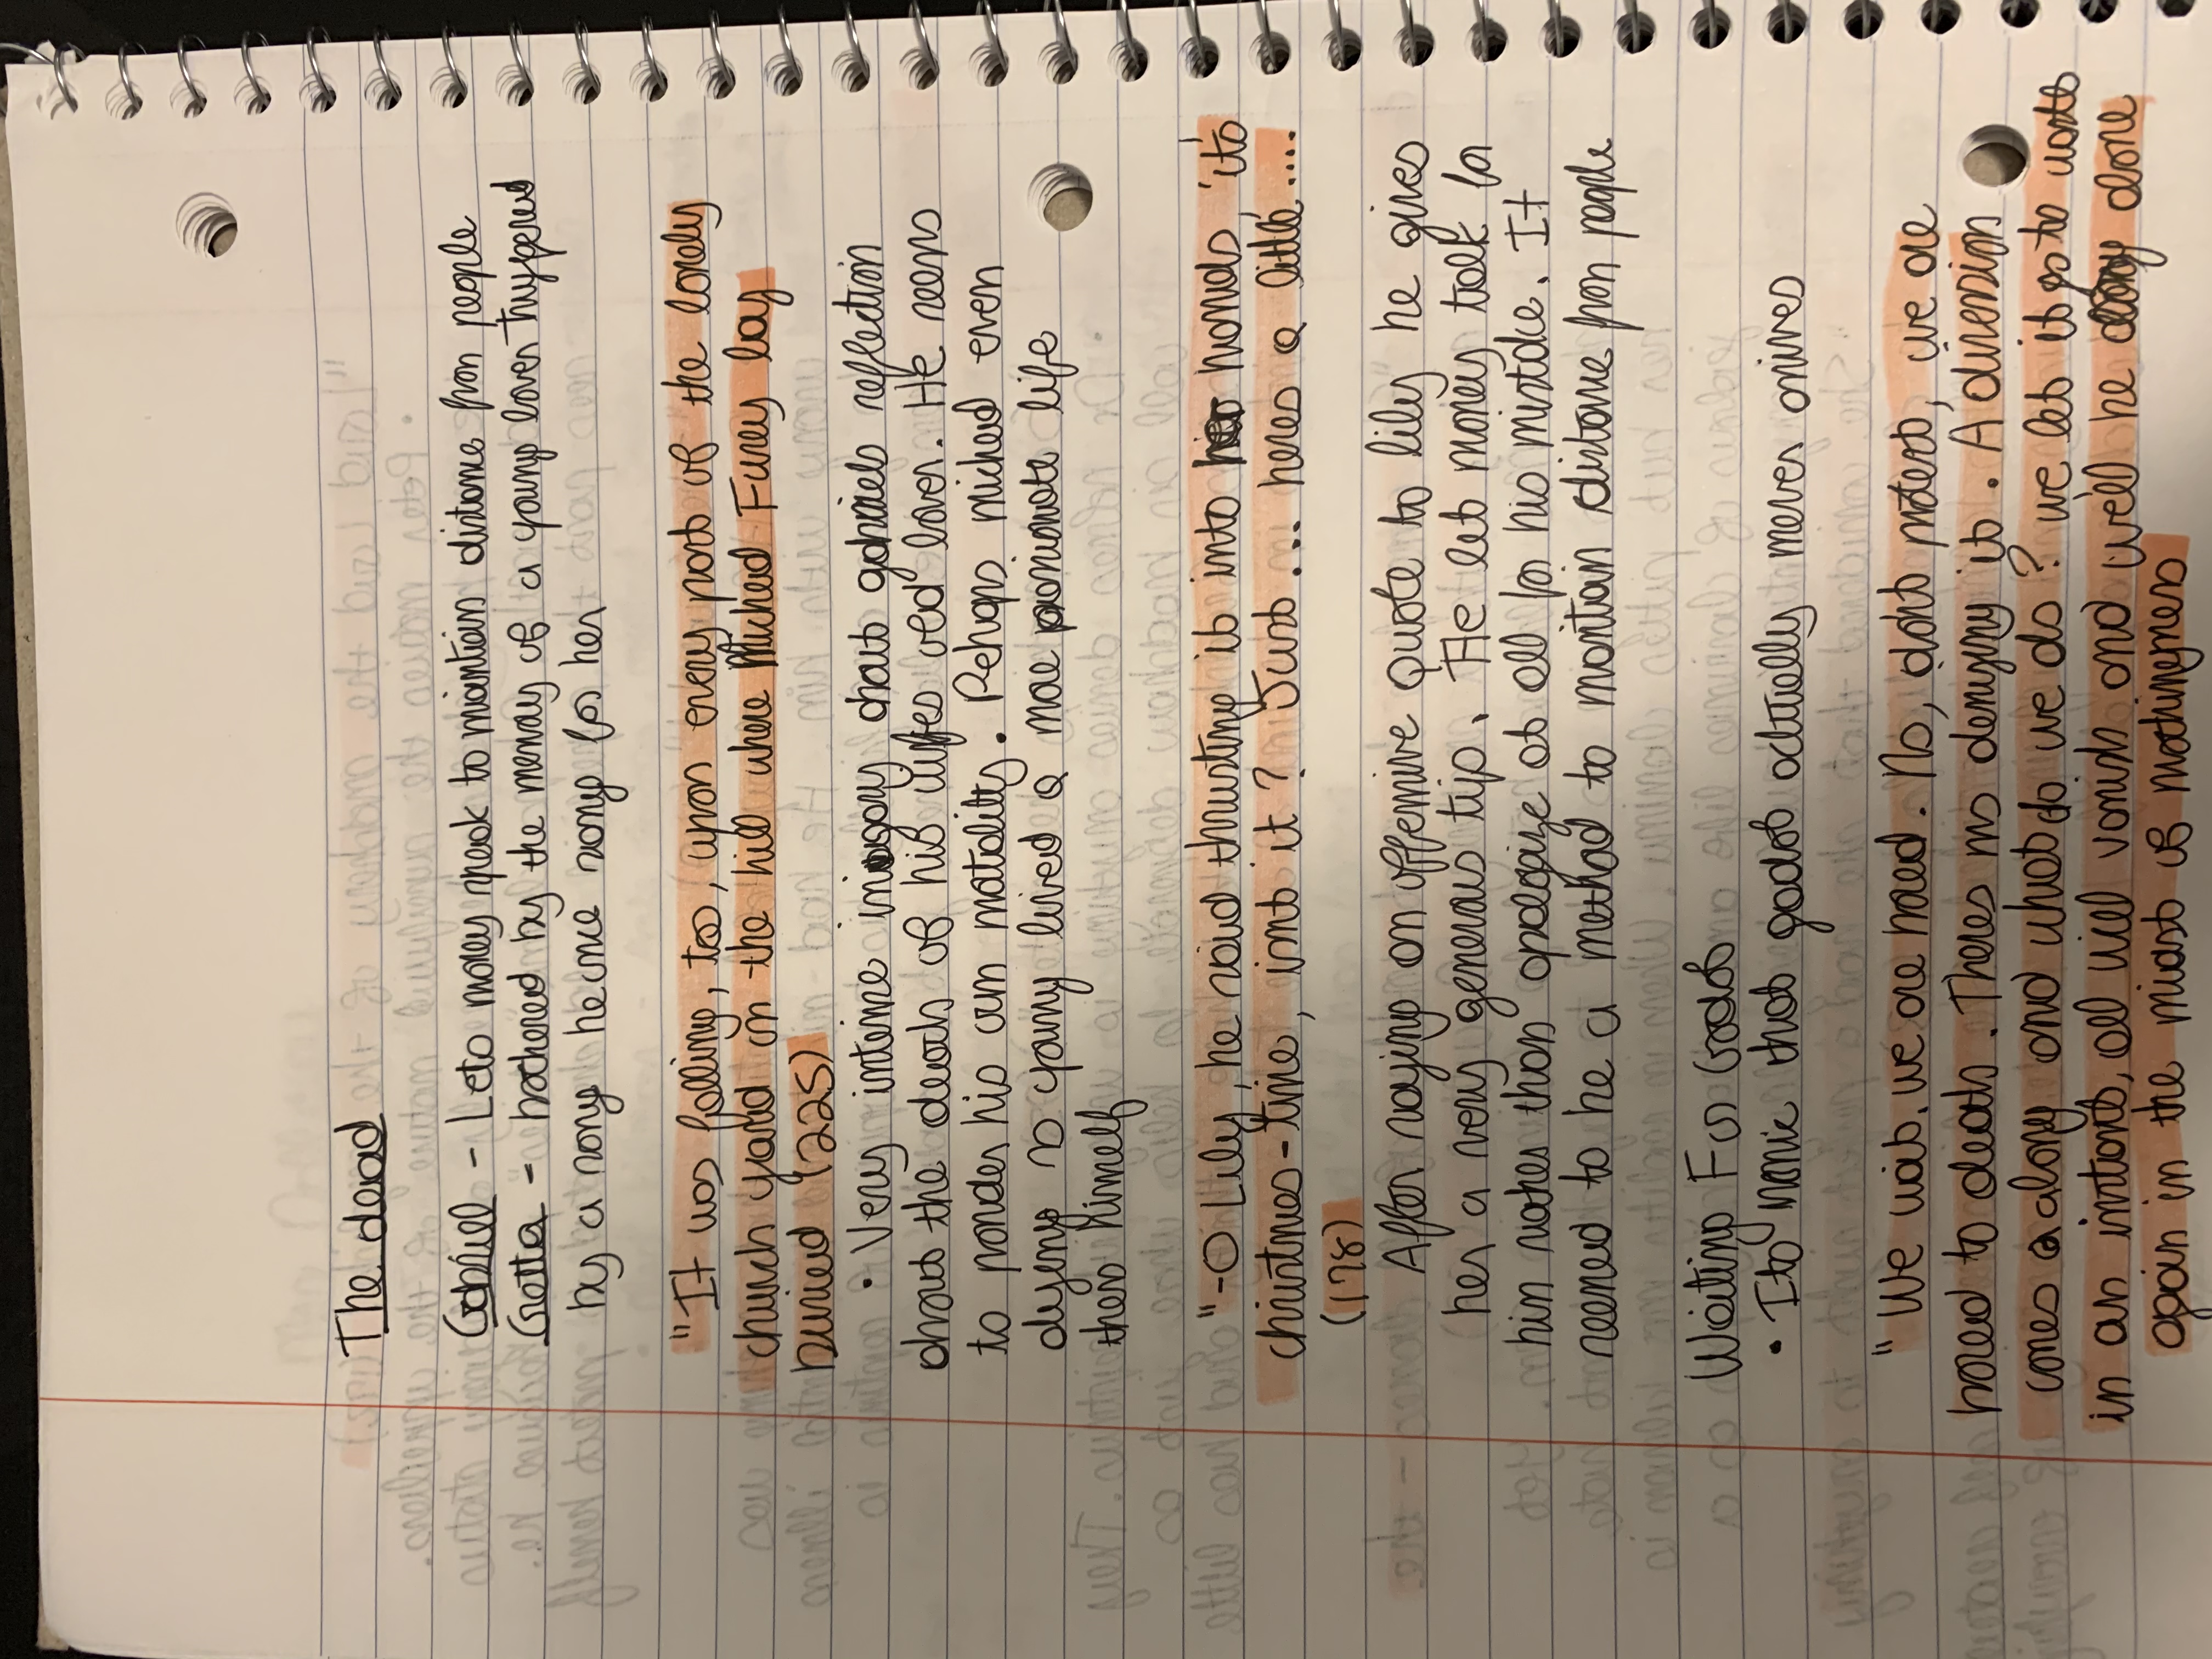 The dead
Gabriel - Lets money speak to maintain distance from people
Gretta - bothered by the memory of a young lover tryggered
by a song he once song for her
"It was falling, too, upon every part of the lonely
church yard on the hill where Micheal Furey lay
buried (225)
• Very intense imagory about gabriels reflection
about the death of his wifes old lover. He seems
to ponder his own mortality. Pehaps micheal even
dyeing so young lived a more passionate life
then himself
"-O Lily, he said thrusting it into her hands, 'its
christmas-time, isnt it? Just... heres a little....
(178)
After saying an offensive quote to lily he gives
her a very generous tip. He let money talk for
him rather than apologize at all for his mistake. It
seemed to be a method to maintain distance from people
Waiting For Godot
• Its ironic that godot actually never arrives
"We wait. we are bored. No, don't protest, we are
bored to death. Theres no denying it. A diversion
comes along and what do we do? we let it go to waste
in an instant, all will vanish and we'll be alone
again in the midst of nothingness